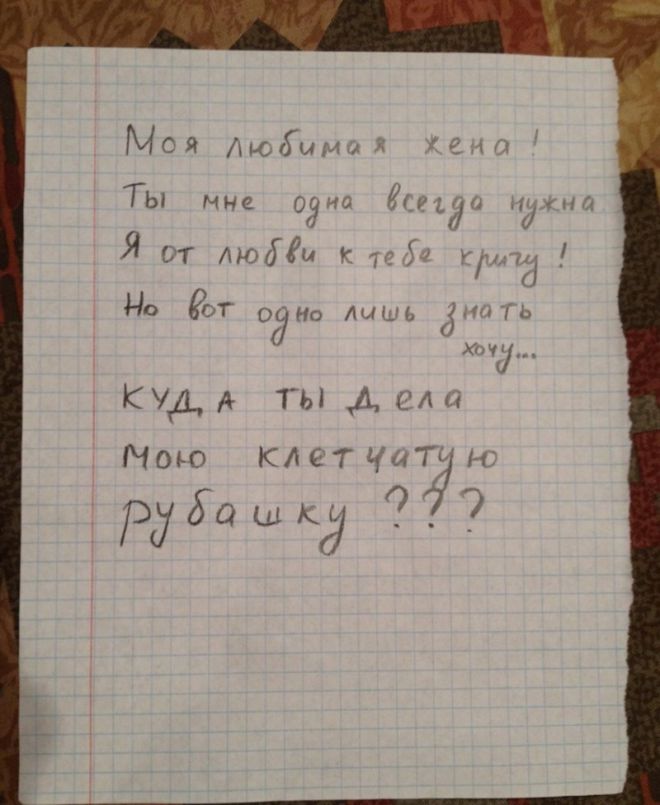 Моя любимая жена!
Ты мне одна всегда нужна
Я от любви к тебе кричу!
Но вот одно лишь знать
хочу...
КУДА ТЫ ДЕЛА
МОЮ КЛЕТЧАТУЮ
РУБАШКУ???